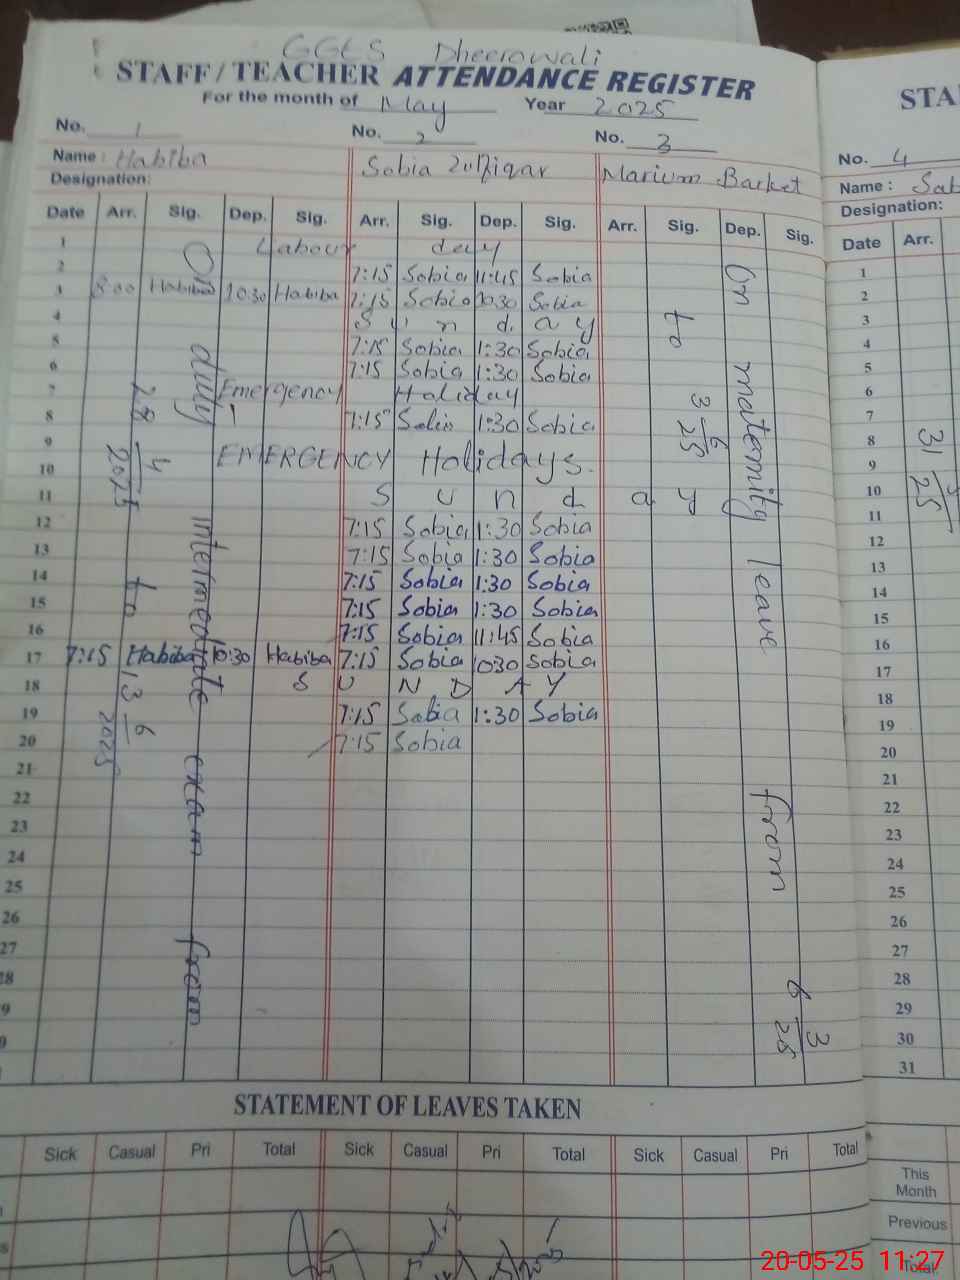 GGES Dheerowali
STAFF / TEACHER ATTENDANCE REGISTER
For the month of May Year 2025
No. 1 No. 2 No. 3
Name : Habiba Sobia Zulfiqar Marium Barket
Designation:
Date Arr. Sig. Dep. Sig. Arr. Sig. Dep. Sig. Arr. Sig. Dep. Sig.
1 Labour day
2 7:15 Sobia 11:45 Sobia
3 8:00 Habiba 10:30 Habiba 7:15 Sobia 10:30 Sobia
4 S u n d a y
5 7:15 Sobia 1:30 Sobia
6 7:15 Sobia 1:30 Sobia
7 Emergency Holiday
8 7:15 Sobia 1:30 Sobia
9
10 EMERGENCY Holidays.
11 S u n d a y
12 7:15 Sobia 1:30 Sobia
13 7:15 Sobia 1:30 Sobia
14 7:15 Sobia 1:30 Sobia
15 7:15 Sobia 1:30 Sobia
16 7:15 Sobia 11:45 Sobia
17 7:15 Habiba 10:30 Habiba 7:15 Sobia 1030 Sobia
18 S U N D A Y
19 7:15 Sobia 1:30 Sobia
20 7:15 Sobia
21
22
23
24
25
26
27
28
9
0
On duty intermediate exam from
28 4 2025 to 13 6 2025
On maternity leave from 6 3 25
to 3 6 25
STATEMENT OF LEAVES TAKEN
Sick Casual Pri Total Sick Casual Pri Total Sick Casual Pri Total
STA
No. 4
Name : Sab
Designation:
Date Arr.
1
2
3
4
5
6
7
8
9
10
11
12
13
14
15
16
17
18
19
20
21
22
23
24
25
26
27
28
29
30
31
31 25
This Month
Previous
Total
20-05-25 11:27